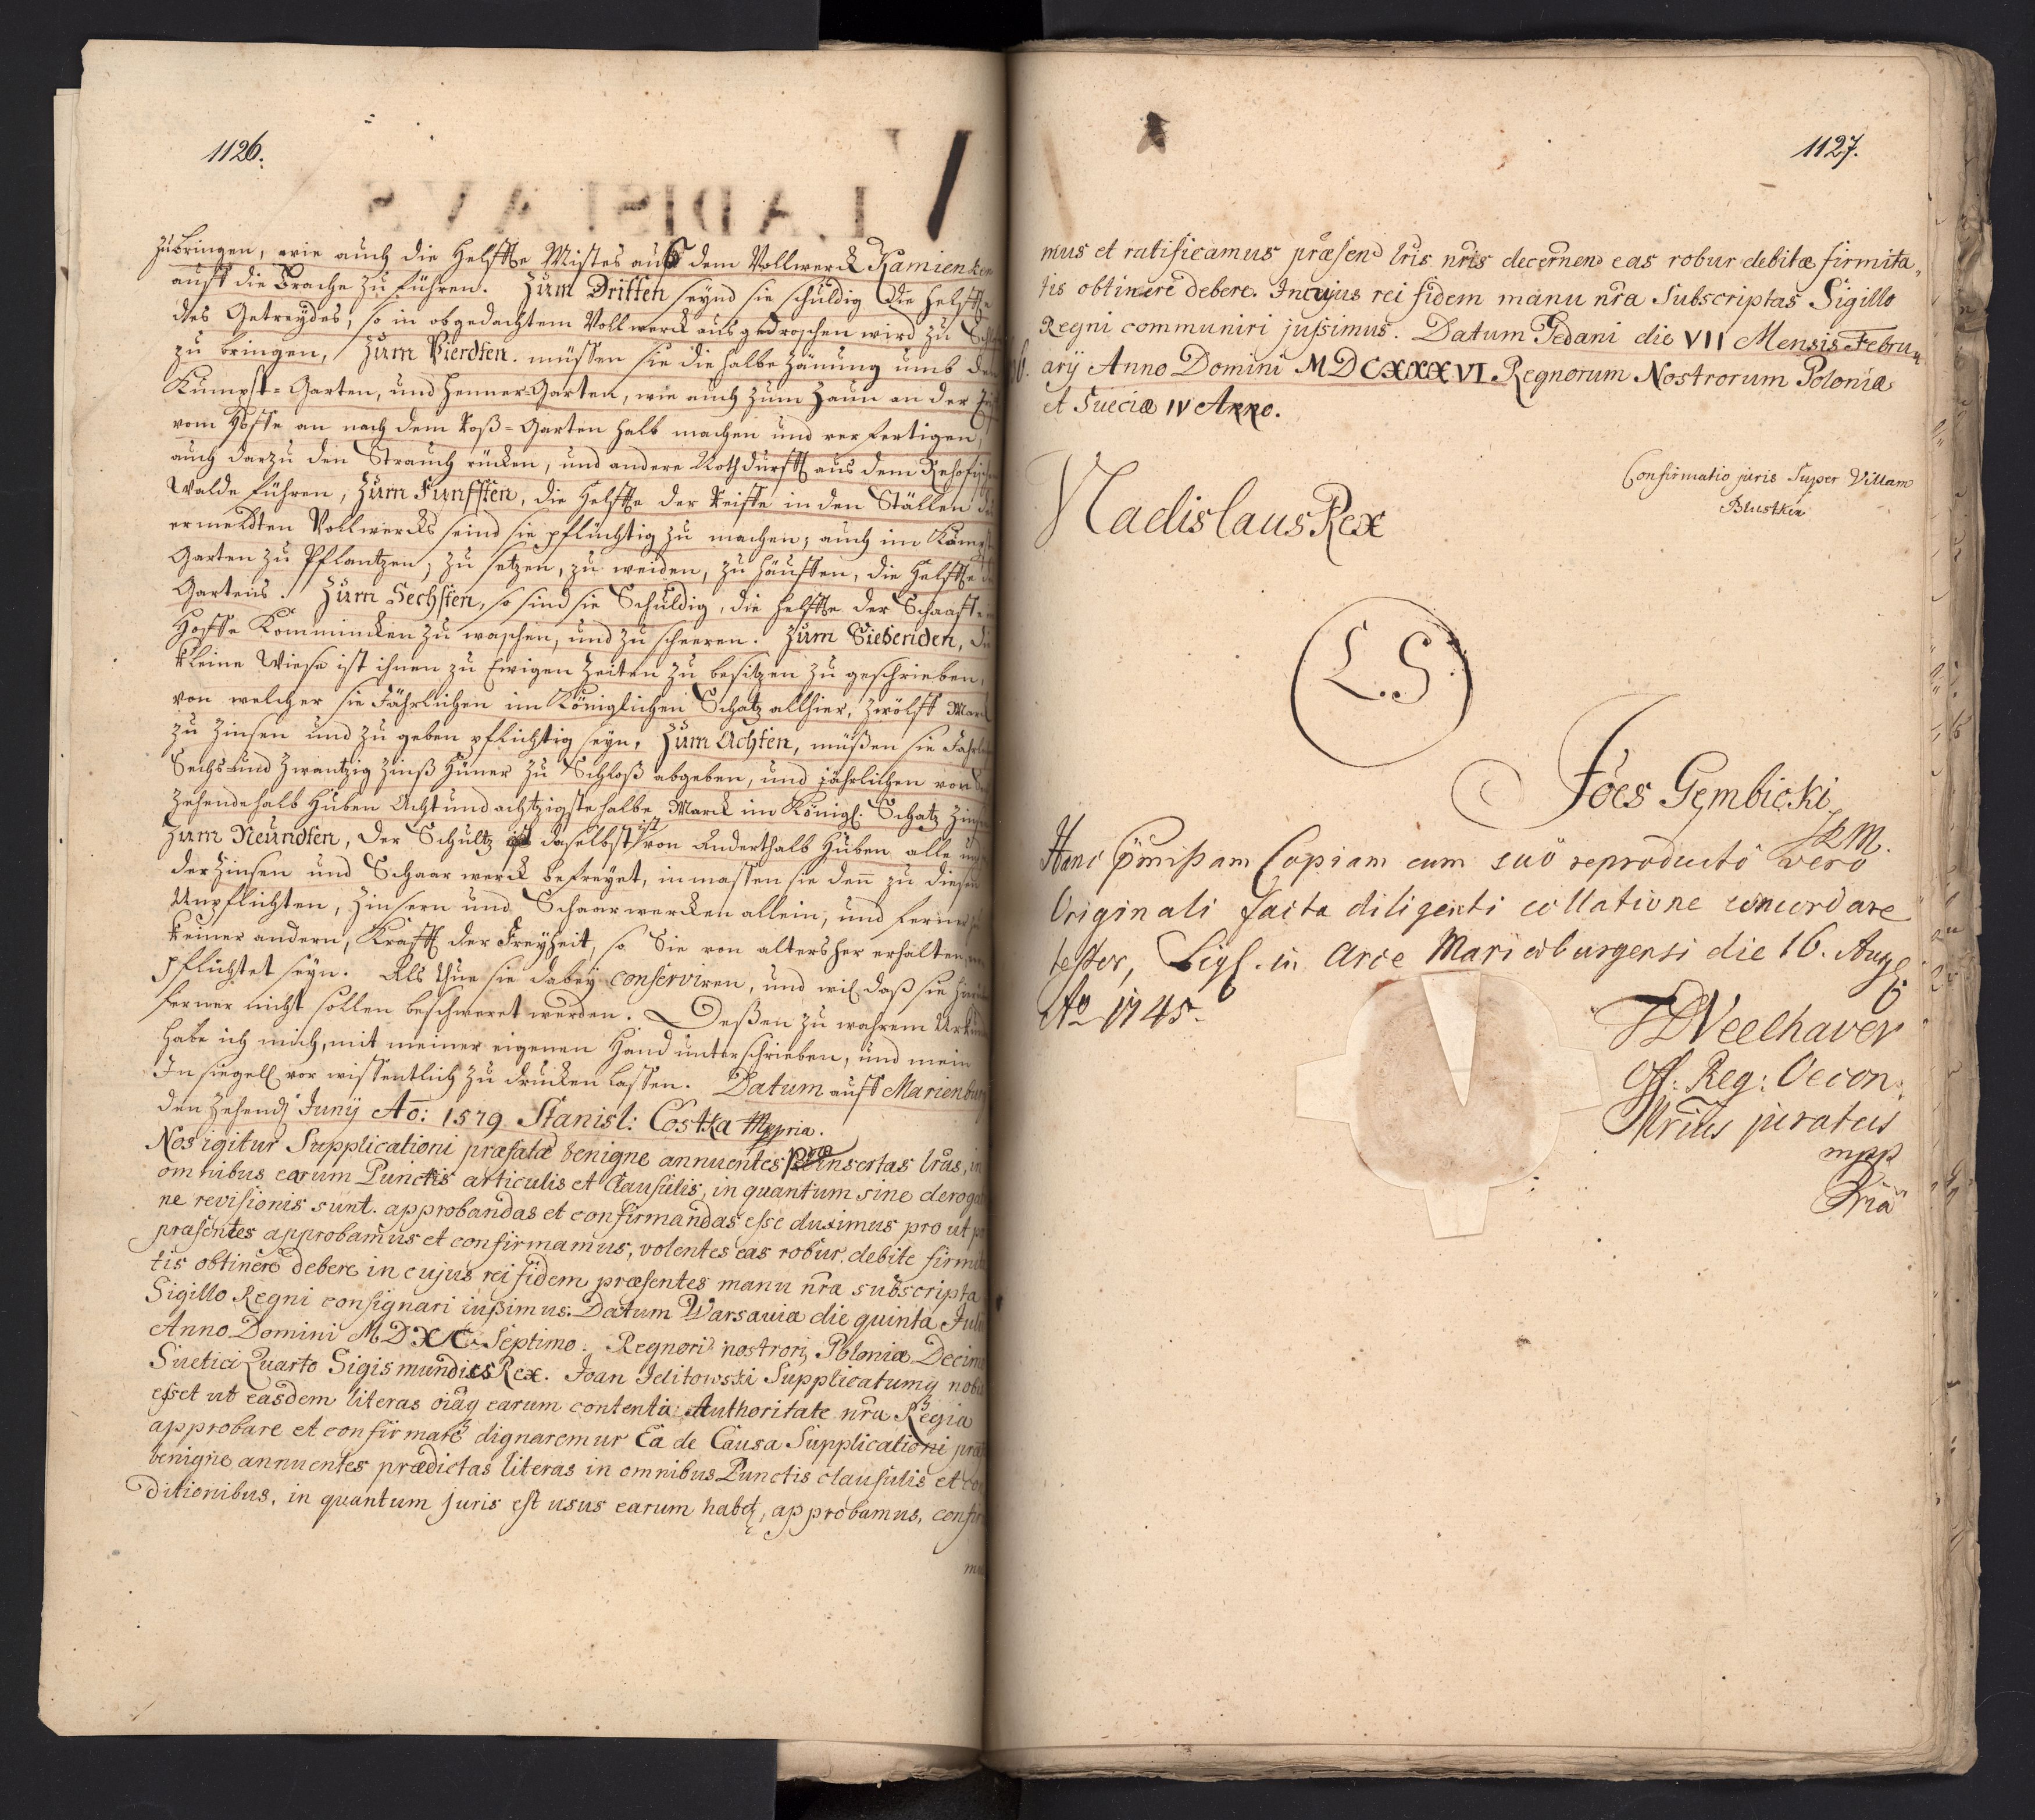 1126.
zubringen, wie auch die Helffte Mistes auß dem Vollwerck Kamienken
auff die Brache zu führen. Zum Dritten seynd sie schuldig die Helffte
des Getreydes, so in obgedachtem Vollwerck ausgedroschen wird zu
zu bringen, Zum Vierdten. müssen sie die halbe Zäunung umb den
Kumpst-Garten, und Henner-Garten, wie auch zum Zaun an der
vom Hoffe an nach dem Roß-Garten halb machen und verfertigen,
auch darzu den Strauch rücken, und andere Nothdurfft aus dem
Walde führen, Zum Funfften, die Helffte der in den Ställen
ermeldten Vollwercks seind sie pflichtig zu machen, auch im
Garten zu Pflantzen, zu setzen, zu weiden, zu häuffen, die Helffte
Gartens. Zum Sechsten, so sind sie Schuldig, die Helffte der Schaaffe
Hoffe Kommincken zu waschen, und zu scheeren. Zum Siebenden, die
kleine Wiese ist ihnen zu Ewigen Zeiten zu besitzen zu geschrieben,
von welcher sie Jährlichen im Königlichen Schatz allhier, zwölff Marck
zu Zinsen und zu geben pflichtig seyn, Zum Achten, müßen sie
Sechs und Zwantzig Zinß Hüner zu Schloß abgeben, und jährlichen von
Zehendehalb Huben Acht und achtzigste halbe Marck im Königl. Schatz
Zum Neundten, der Schultz daselbst ist von Anderthalb Huben alle
der Zinsen und Schaarwerck befreyet, inmassen sie denn zu diesen
Unpflichten, Zinsern und Schaarwercken allein, und ferner
keiner andern, Krafft der Freyheit, so Sie von altersher erhalten,
pflichtet seyn. Als Thue sie dabey conserviren, und wil daß sie
ferner nicht sollen beschweret werden. Deßen zu wahrem
habe ich mich, mit meiner eigenen Hand unterschrieben, und mein
Insiegell vor wissentlich zu drucken lassen. Datum auff Marienburg
den Zehend Junij Ao: 1579 Stanisl: Costka Mppria.
Nos igitur Supplicationi præfatæ benigne annuentes præinsertas lrãs, in
omnibus earum Punctis articulis et Clausulis, in quantum sine
ne revisionis sunt. approbandas et confirmandas esse duximus pro ut
præsentes approbamus et confirmamus, volentes eas robur debite
tis obtinere debere in cujus rei fidem præsentes manu nrã subscripta
Sigillo Regni consignari iußimus: Datum Warsaviæ die quinta Julii
Anno Domini MDXC Septimo. Regnorũ nostrorũ Poloniæ
Suetici Quarto Sigismundus Rex. Joan Jelitowski Supplicatumq nobis
esset ut easdem literas oiaq earum contenta Authoritate nrã Regia
approbare et confirmare dignaremur Ea de Causa Supplicationi
benigne annuentes prædictas literas in omnibus Punctis clausulis et con
ditionibus, in quantum juris est usus earum habet, approbamus, confir
1127.
mus et ratificamus præsend lris nris decernend eas robur debitæ firmita„
tis obtinere debere. In cujus rei fidem manu nrã Subscriptas Sigillo
Regni communiri jussimus. Datum Gedani die VII Mensis Febru„
arij Anno Domini MDCXXXVI. Regnorum Nostrorum Poloniæ
et Sueciæ IV Anno.
Vladislaus Rex
Confirmatio juris Super Villam
L.S.
Joes Gembicki
Hanc pmissam Copiam cum suo reproducto vero
Originali facta diligenti collatione concordare
testor, Sigl. in Arce Marieburgensi die 16. Aug
Ao 1745.
Off: Reg: Oecon:
juratus
mpp